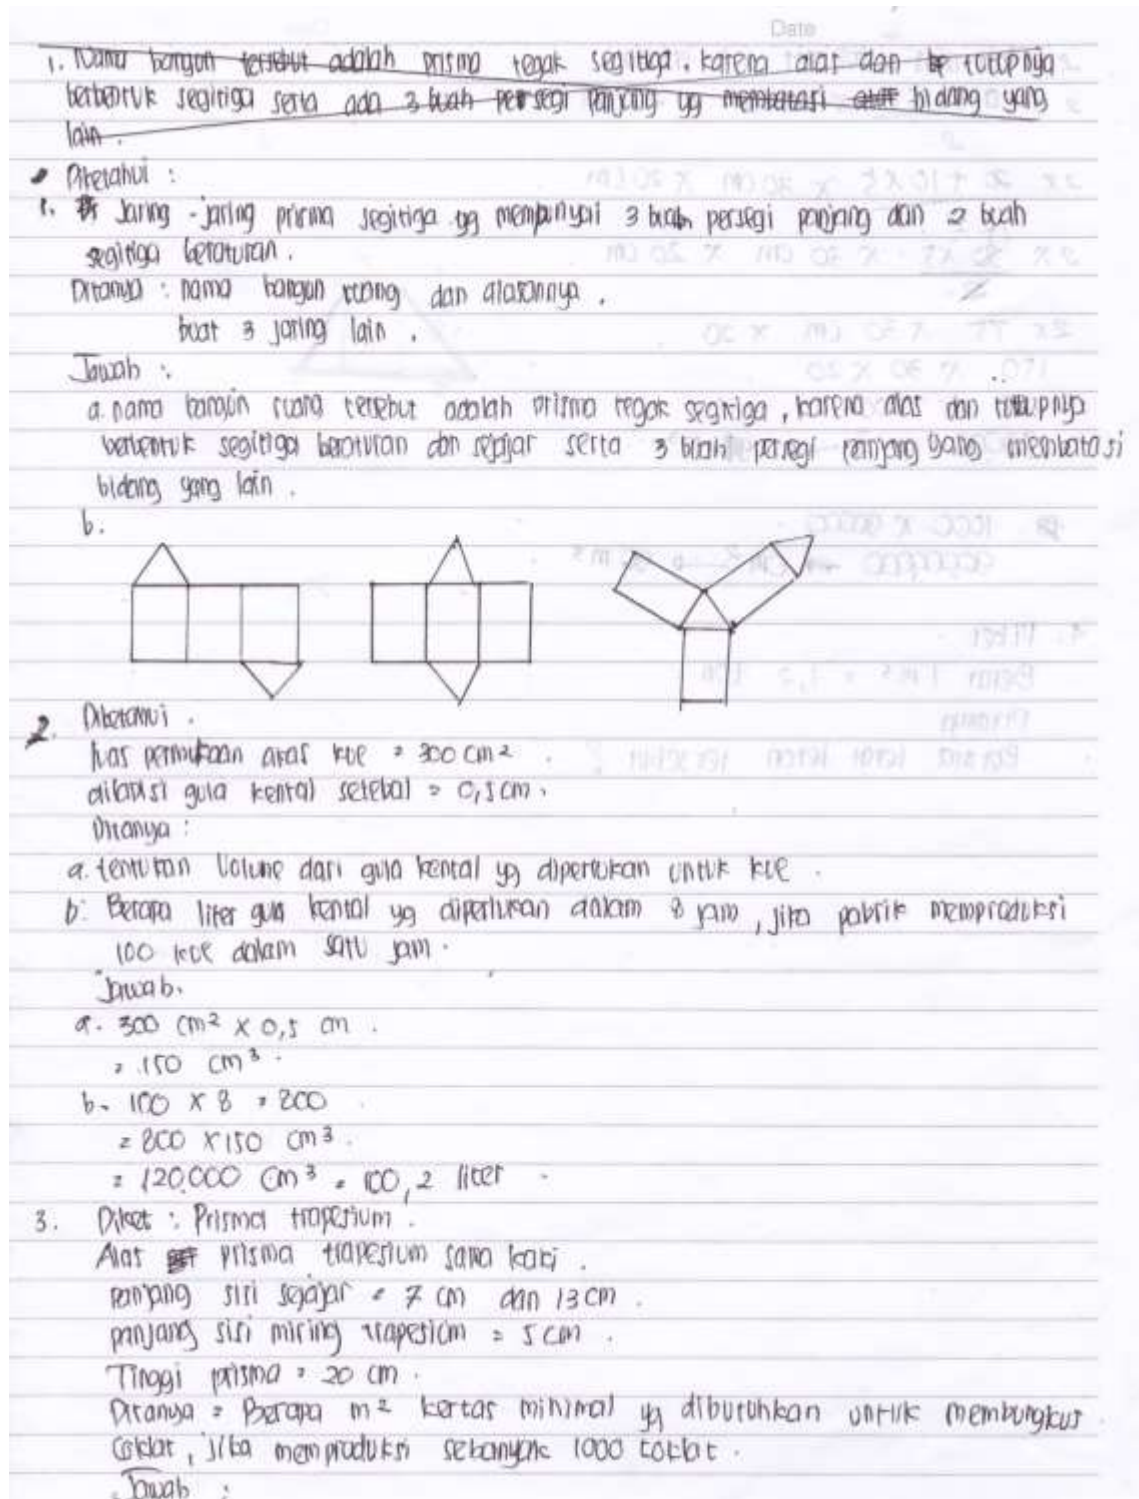 Date
1. Nama bangun tersebut adalah prisma tegak segitiga. karena alas dan tutupnya
berbentuk segitiga serta ada 3 buah persegi panjang yg membatasi bidang yang
lain.
Diketahui :
1. Jaring-jaring prisma segitiga yg mempunyai 3 buah persegi panjang dan 2 buah
segitiga beraturan.
Ditanya : nama bangun ruang dan alasannya.
buat 3 jaring lain.
Jawab :
a. nama bangun ruang tersebut adalah prisma tegak segitiga, karena alas dan tutupnya
berbentuk segitiga beraturan dan sejajar serta 3 buah persegi panjang yang membatasi
bidang yang lain.
b.
2. Diketahui.
luas permukaan atas kue = 300 cm²
dilapisi gula kental setebal = 0,5 cm.
Ditanya :
a. tentukan Volume dari gula kental yg diperlukan untuk kue.
b. Berapa liter gula kental yg diperlukan dalam 8 jam, jika pabrik memproduksi
100 kue dalam satu jam.
Jawab.
a. 300 cm² x 0,5 cm.
= 150 cm³.
b. 100 x 8 = 800
= 800 x 150 cm³.
= 120.000 cm³ = 100,2 liter
3. Diket : Prisma trapesium.
Alas prisma trapesium sama kaki.
panjang sisi sejajar = 7 cm dan 13 cm.
panjang sisi miring trapesium = 5 cm.
Tinggi prisma = 20 cm.
Ditanya = Berapa m² kertas minimal yg dibutuhkan untuk membungkus
Coklat, jika memproduksi sebanyak 1000 coklat.
Jawab :